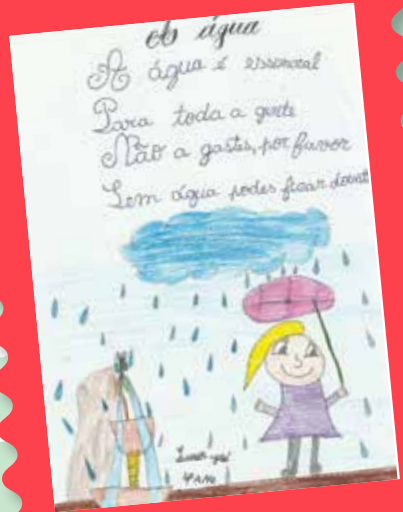 A água
A água é essencial
Para toda a gente
Não a gastes, por favor
Sem água podes ficar doente
4º ano